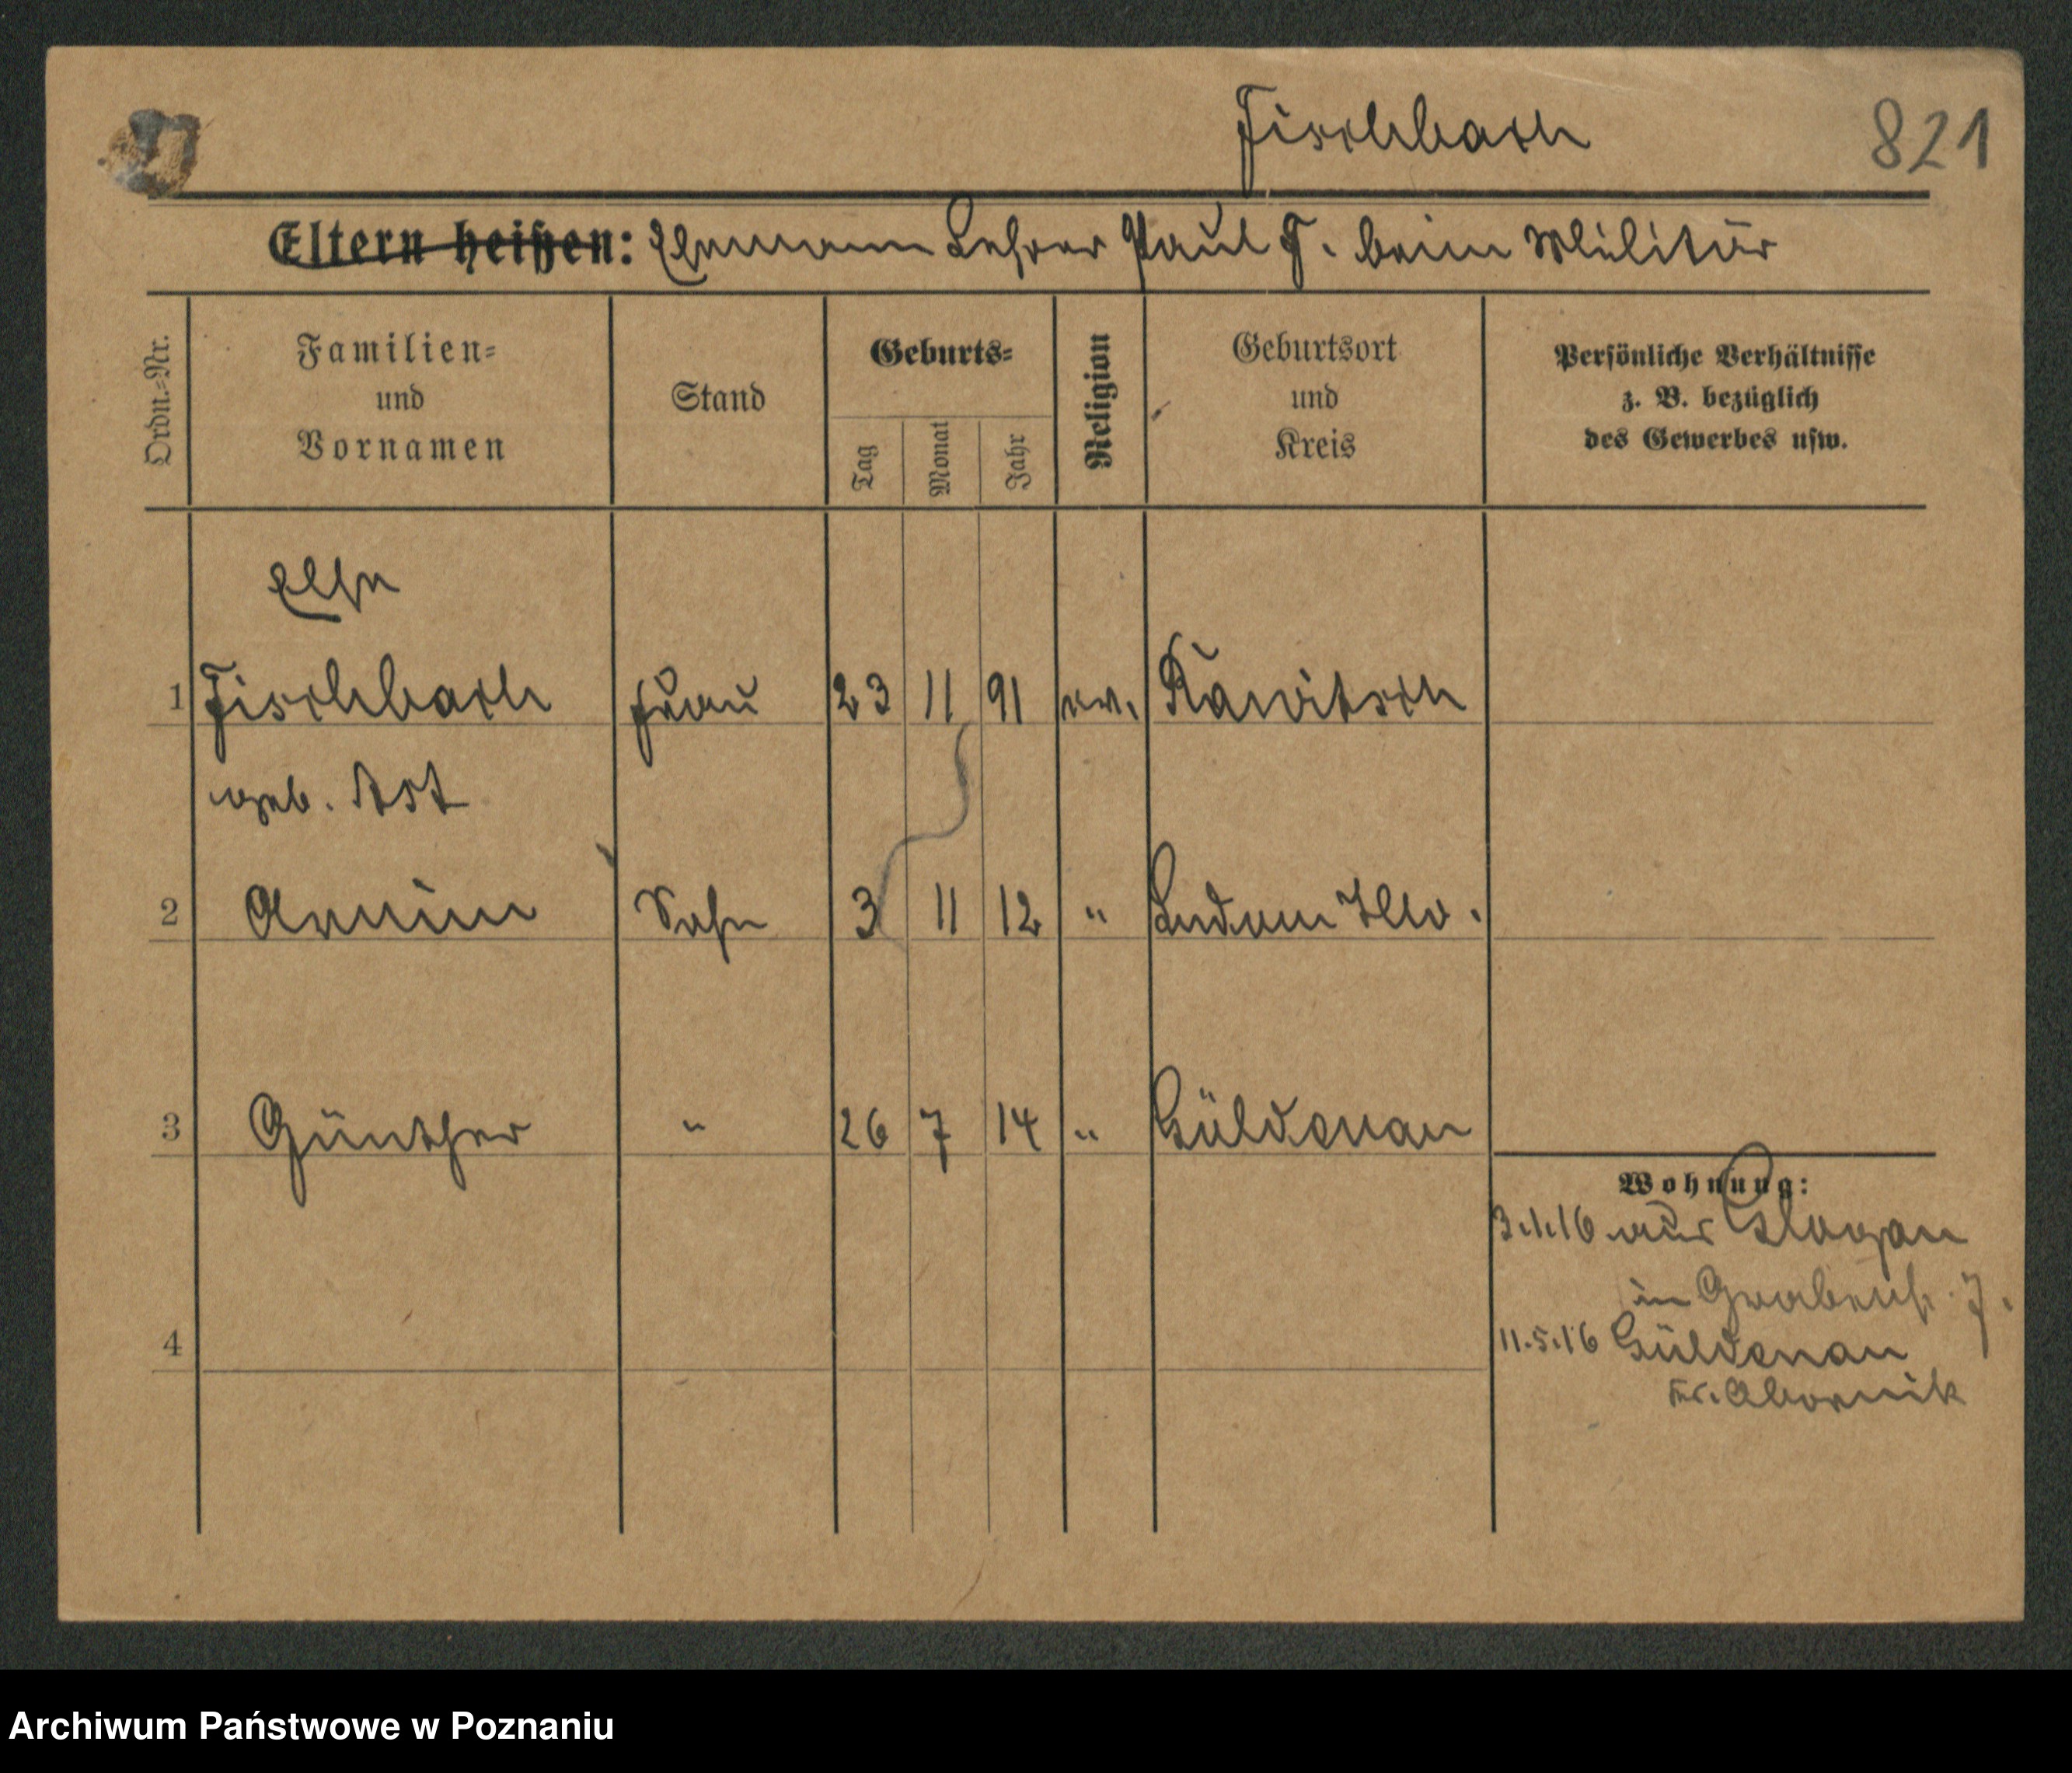 Fischbach
821
Eltern heißen: Ehemann Lehrer Paul F. beim Militär
Ordn.=Nr.
Familien=
und
Vornamen
Stand
Geburts=
Tag
Monat
Jahr
Religion
Geburtsort
und
Kreis
Persönliche Verhältnisse
z. B. bezüglich
des Gewerbes usw.
Else
1 Fischbach Frau 23 11 91 ev. Rawitsch
geb. Ast
2 Armin Sohn 3 11 12 "
3 Günther " 26 7 14 " Güldenau
Wohnung:
3.1.16 aus Glogau
in Grabenst. 7.
4
11.5.16 Güldenau
Kr. Obornik
Archiwum Państwowe w Poznaniu